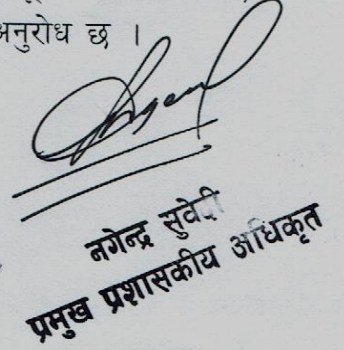 अनुरोध छ ।
नगेन्द्र सुवेदी
प्रमुख प्रशासकीय अधिकृत